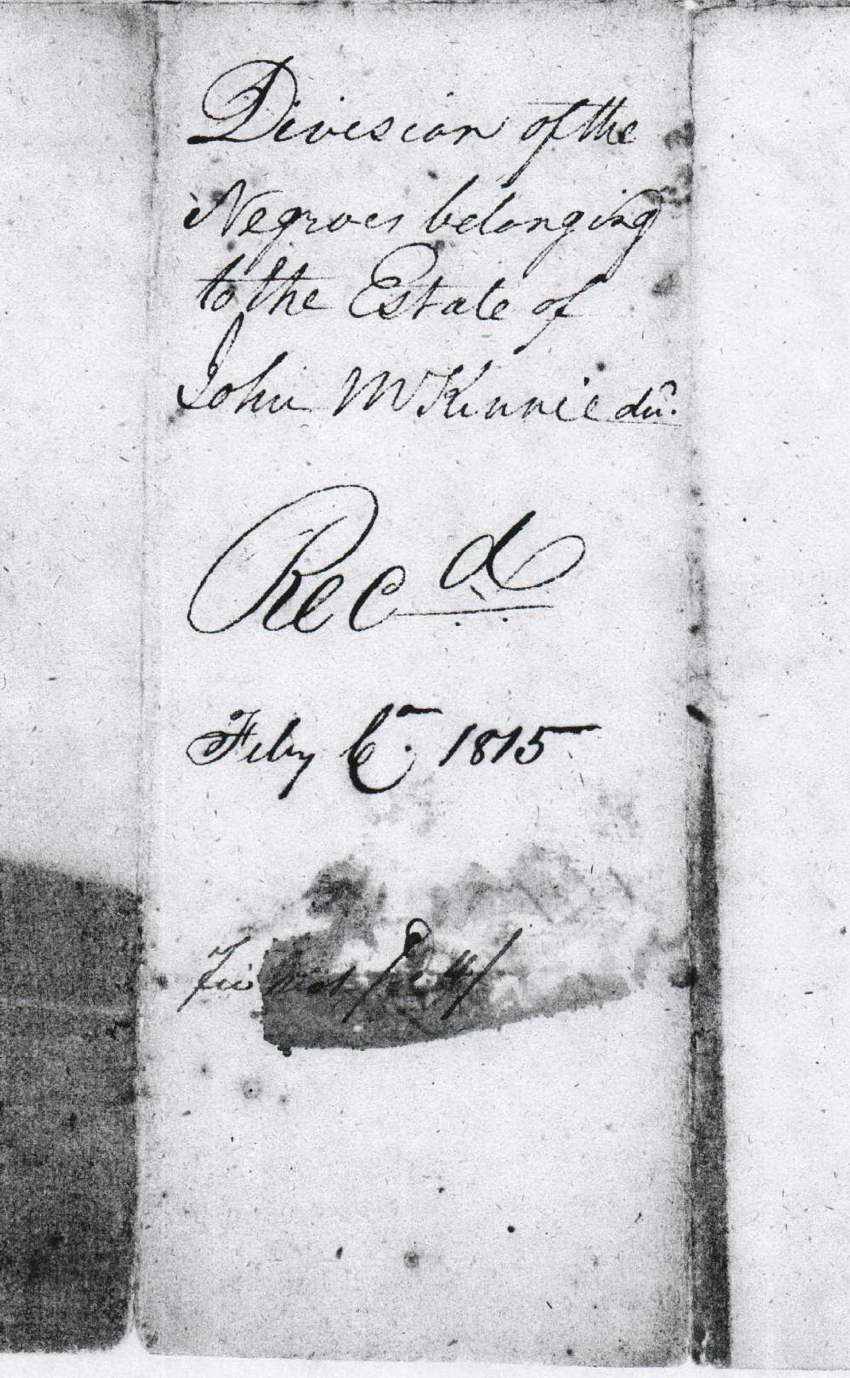 Division of the
Negroes belonging
to the Estate of
John McKinnie
Rec d
Feby 6 1815